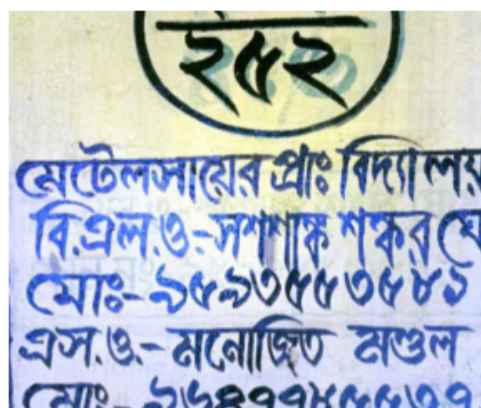 ২৫২
মেটেলসায়ের প্রাঃ বিদ্যালয়
বি.এল.ও.-সশাঙ্ক শঙ্কর
মোঃ-৯৫৯৩৫৫৩৫৮১
এস.ও.- মনোজিত মণ্ডল
মোঃ-